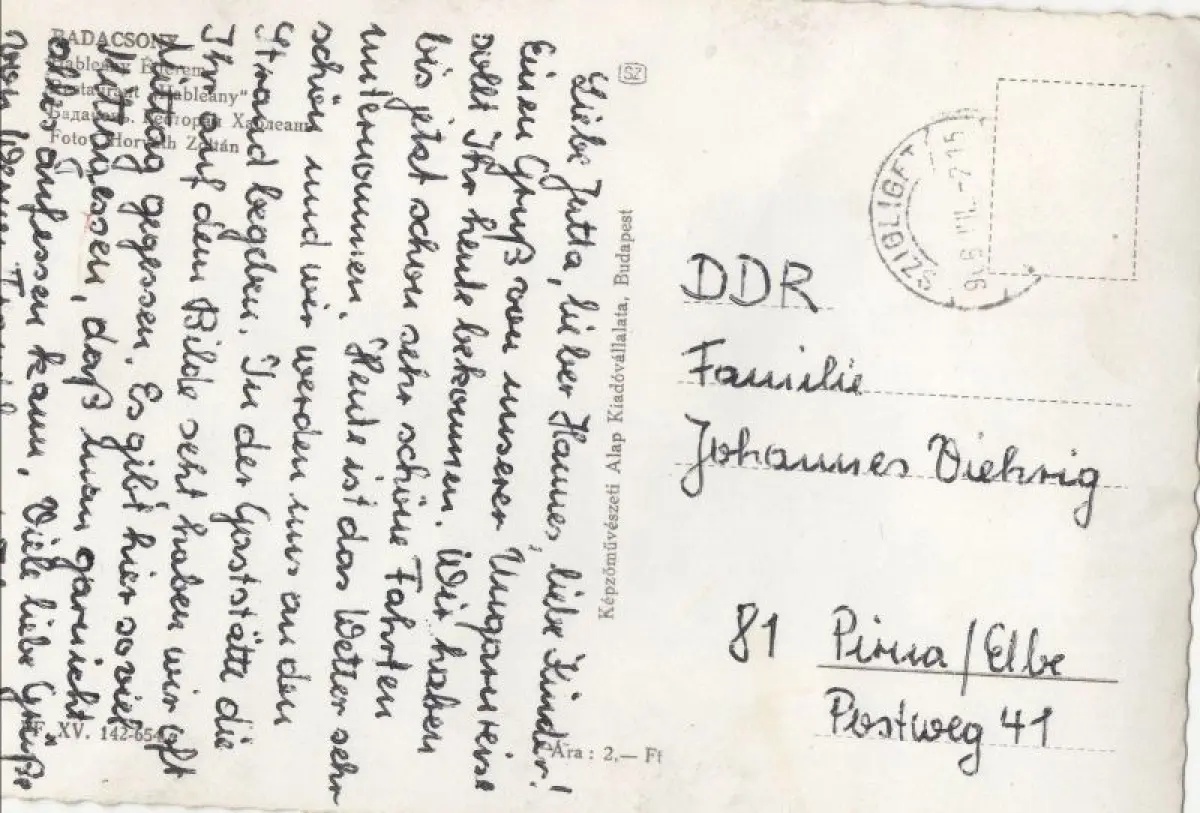 BADACSONY
Hableány Étterem
Restaurant „Hableány”
Бадачонь. Ресторан Хаблеань
Foto: Horváth Zoltán
Liebe Jutta, lieber Hannes, liebe Kinder!
Einen Gruß von unserer Ungarnreise
sollt Ihr heute bekommen. Wir haben
bis jetzt schon sehr schöne Fahrten
unternommen. Heute ist das Wetter sehr
schön und wir werden uns an den
Strand begeben. In der Gaststätte die
Ihr auf dem Bilde seht haben wir oft
Mittag gegessen. Es gibt hier soviel
Mittagessen, daß man garnicht
alles aufessen kann. Viele liebe Grüße
von
XV. 142-654
Képzőművészeti Alap Kiadóvállalata, Budapest
Ára: 2,— Ft
SZ
SZIGLIGET
DDR
Familie
Johannes Viehrig
81 Pirna/Elbe
Postweg 41